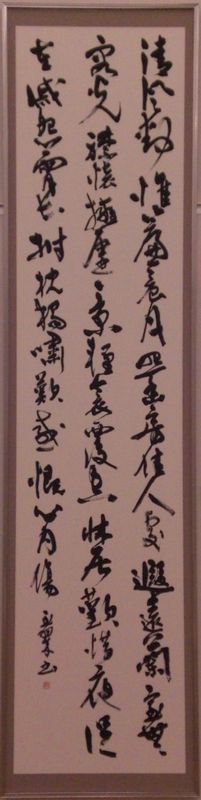 清風動帷簾晨月照幽房佳人處遐遠蘭室無
容光襟懷擁虛景輕衾覆空床居歡惜夜促
在慼怨宵長拊枕獨嘯歎感慨心內傷 書